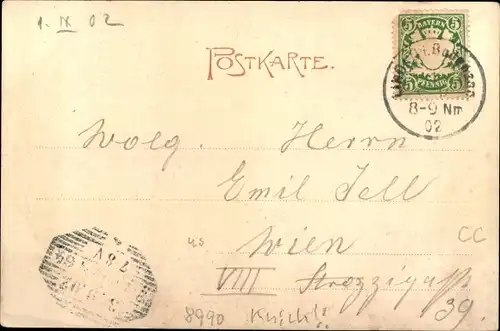 1. IX 02
POSTKARTE.
BAYERN
5 5
PFENNIG
8-9 Nm
02
Wolg. Herrn
Emil Tell
us
Wien
CC
VIII Strozzigasse
39.
8990